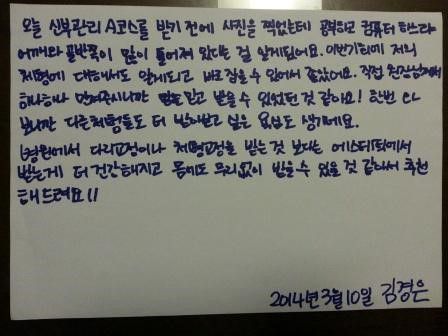 오늘 신부관리 A코스를 받기 전에 사진을 찍었는데 공부하고 컴퓨터 하느라
어깨와 골반쪽이 많이 틀어져 있다는 걸 알게됐어요. 이번기회에 저의
체형에 대해서도 알게되고 바로잡을 수 있어서 좋았어요. 직접 원장님께서
하나하나 만져주시니깐 믿고 받을 수 있었던 것 같아요! 한번 받
보니깐 다른체험들도 더 받아보고 싶은 욕심도 생기네요.
(병원에서 다리교정이나 체형교정을 받는 것 보다는 에스테틱에서
받는게 더 건강해지고 몸에도 무리없이 받을 수 있을 것 같아서 추천
해드려요!!
2014년 3월 10일 김경은